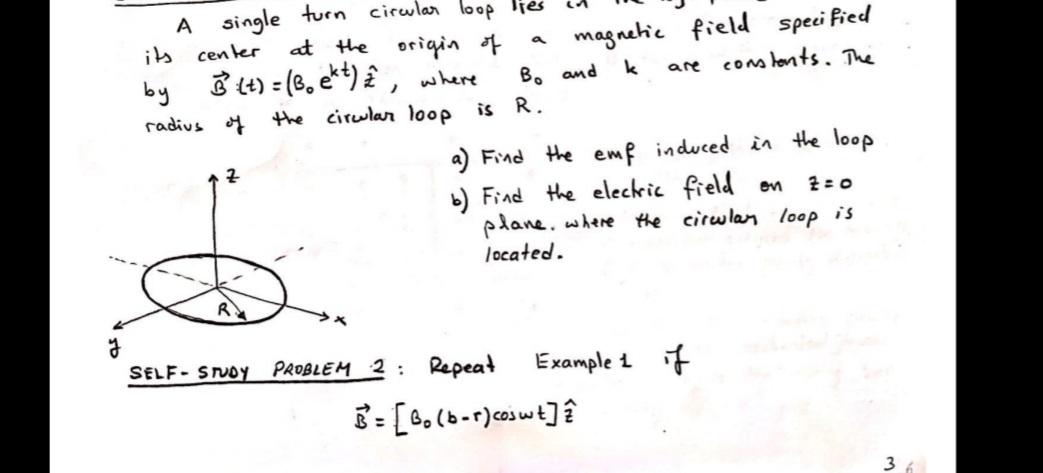 A single turn circular loop lies in the
its center at the origin of a magnetic field specified
by B⃗(t) = (B₀ e^{kt}) ẑ, where B₀ and k are constants. The
radius of the circular loop is R.
a) Find the emf induced in the loop
b) Find the electric field on z=0
plane. where the circular loop is
located.
z
R
x
y
SELF-STUDY PROBLEM 2 : Repeat Example 1 if
B⃗ = [B₀(b-r)cosωt] ẑ
3